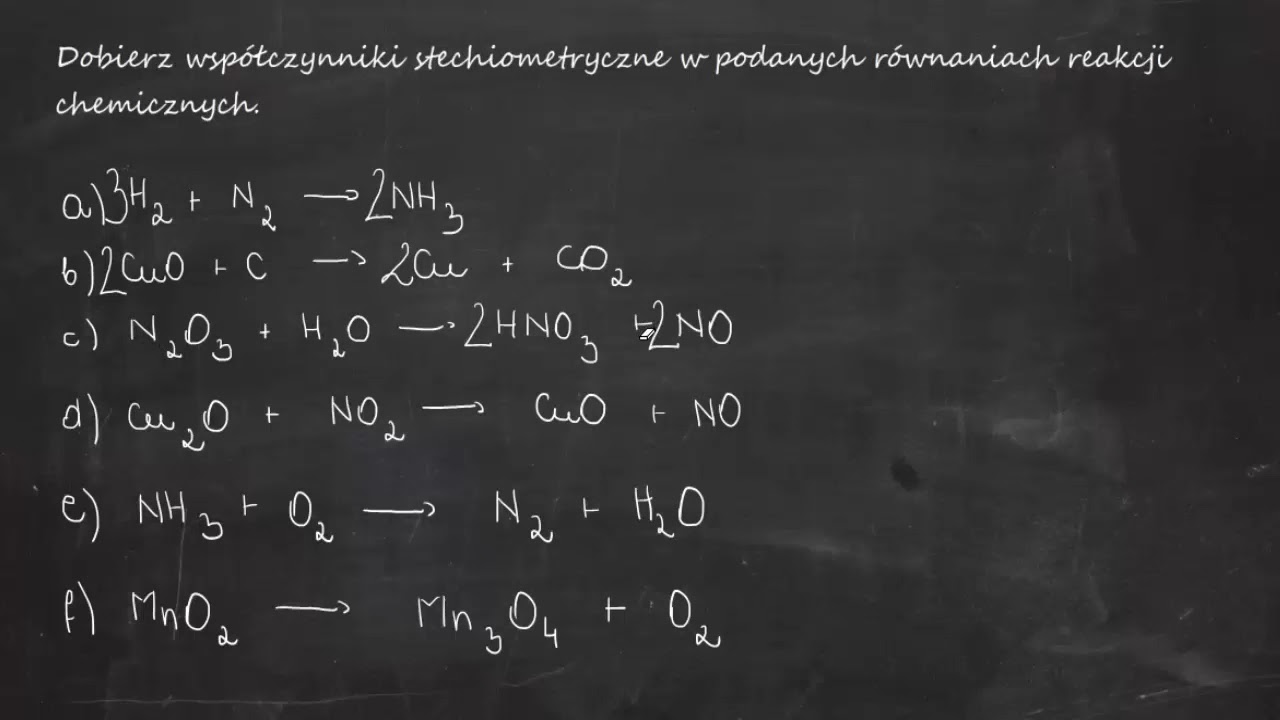 Dobierz współczynniki stechiometryczne w podanych równaniach reakcji
chemicznych.
a) 3H₂ + N₂ → 2NH₃
b) 2CuO + C → 2Cu + CO₂
c) N₂O₃ + H₂O → 2HNO₃ + 2NO
d) Cu₂O + NO₂ → CuO + NO
e) NH₃ + O₂ → N₂ + H₂O
f) MnO₂ → Mn₃O₄ + O₂